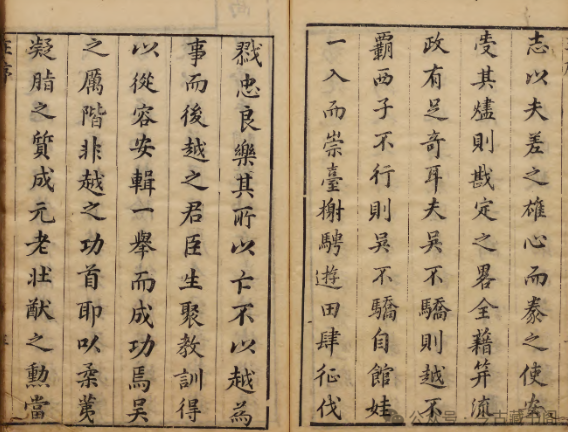 志以夫差之雄心而泰之使安
受其燼則戡定之畧全藉笄流
政有足奇耳夫吳不驕則越不
覇西子不行則吳不驕自館娃
一入而崇臺榭騁遊田肆征伐
戮忠良樂其所以亡不以越為
事而後越之君臣生聚教訓得
以從容安輯一舉而成功焉吳
之厲階非越之功首耶以柔荑
凝脂之質成元老壯猷之勳當
公众号·今古藏书阁